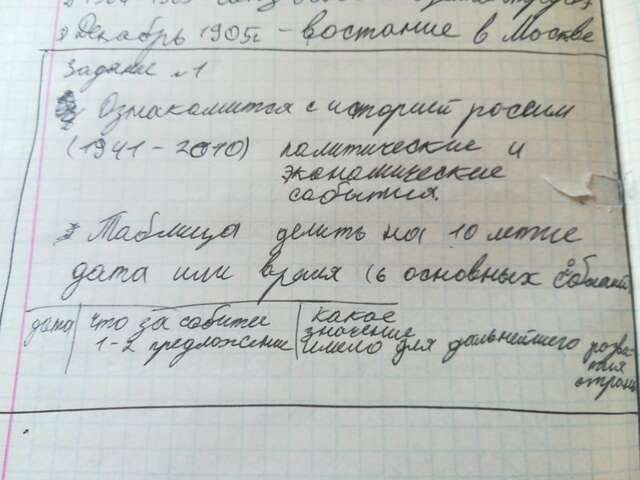 3 Декабрь 1905г – востание в Москве
Задание №1
Ознакомится с историй россии
(1941 – 2010) политические и
экономические
события.
Таблица делить на 10 летие
дата или время (6 основных событий
дата | что за событие | какое
1-2 предложение | значение
имело для дальнейшего разви-
тия
страны